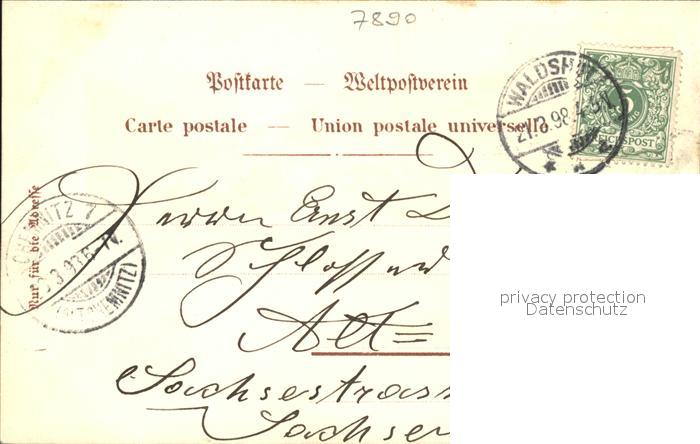 7890
Postkarte — Weltpostverein
Carte postale — Union postale universelle
WALDSHUT
21.3.98.
REICHSPOST
Nur für die Adresse
CHEMNITZ 7
(ALTCHEMNITZ)
Herrn Ernst
Alt=
Sachsestrass
Sachsen
privacy protection
Datenschutz